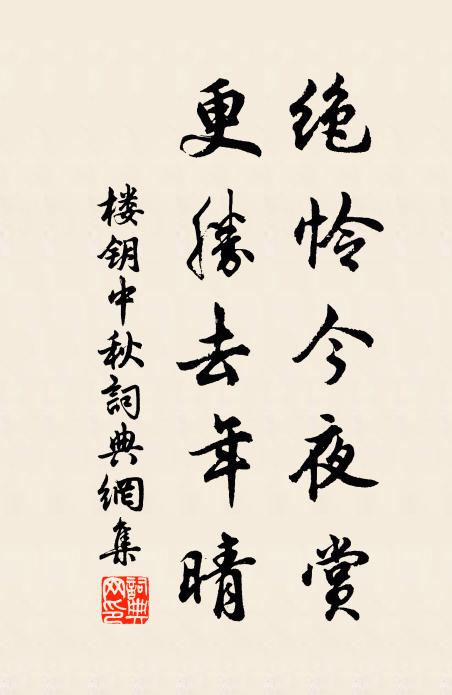 绝怜今夜赏
更勝去年晴
楼钥中秋詞典網集
詞典网印